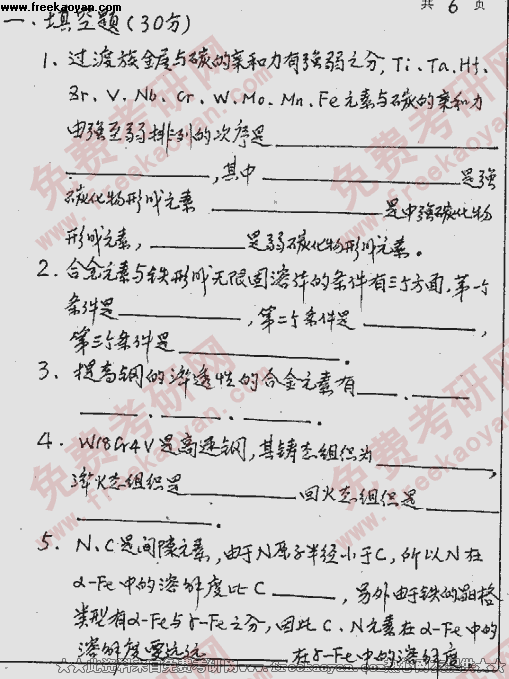 www.freekaoyan.com
共 6 页
一.填空题(30分)
1、过渡族金属与碳的亲和力有强弱之分, Ti、Ta、Hf、
Zr、V、Nb、Cr、W、Mo、Mn、Fe 元素与碳的亲和力
由强至弱排列的次序是
,其中 是强
碳化物形成元素 是中强碳化物
形成元素, 是弱碳化物形成元素。
2.合金元素与铁形成无限固溶体的条件有三个方面,第一个
条件是 ,第二个条件是 ,
第三个条件是 .
3.提高钢的淬透性的合金元素有 .
. . .
4. W18Cr4V是高速钢,其铸态组织为 ,
淬火态组织是 回火态组织是
.
5. N、C是间隙元素,由于N原子半径小于C,所以N在
α-Fe中的溶解度比C ,另外由于铁的晶格
类型有α-Fe与γ-Fe之分,因此C、N元素在α-Fe中的
溶解度要远远 在γ-Fe中的溶解度
免费考研网
www.freekaoyan.com